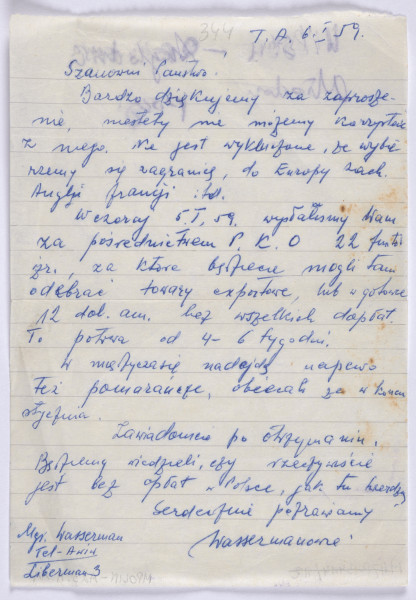 344
T. A. 6 I 59.
Szanowni Państwo.
Bardzo dziękujemy za zaprosze-
nie, niestety nie możemy korzystać
z niego. Nie jest wykluczone, że wybie
rzemy się zagranicę, do Europy zach.
Anglji francji itd.
Wczoraj 5.I. 59. wysłaliśmy Wam
za pośrednictwem P. K. O 22 funty
izr., za które będziecie mogli tam
odebrać towary exportowe, lub w gotówce
12 dol. am. bez wszelkich dopłat.
To potrwa od 4-6 tygodni.
W międzyczasie nadejdą napewno
też pomarańcze, obiecali za w koncu
stycznia.
Zawiadomcie po otrzymaniu.
Będziemy wiedzieli, czy rzeczywiście
jest bez opłat w Polsce, jak tu twierdzą
Serdecznie pozdrawiamy
Wassermanowie
Mgr. Wasserman
Tel-Awiw
Liberman 3